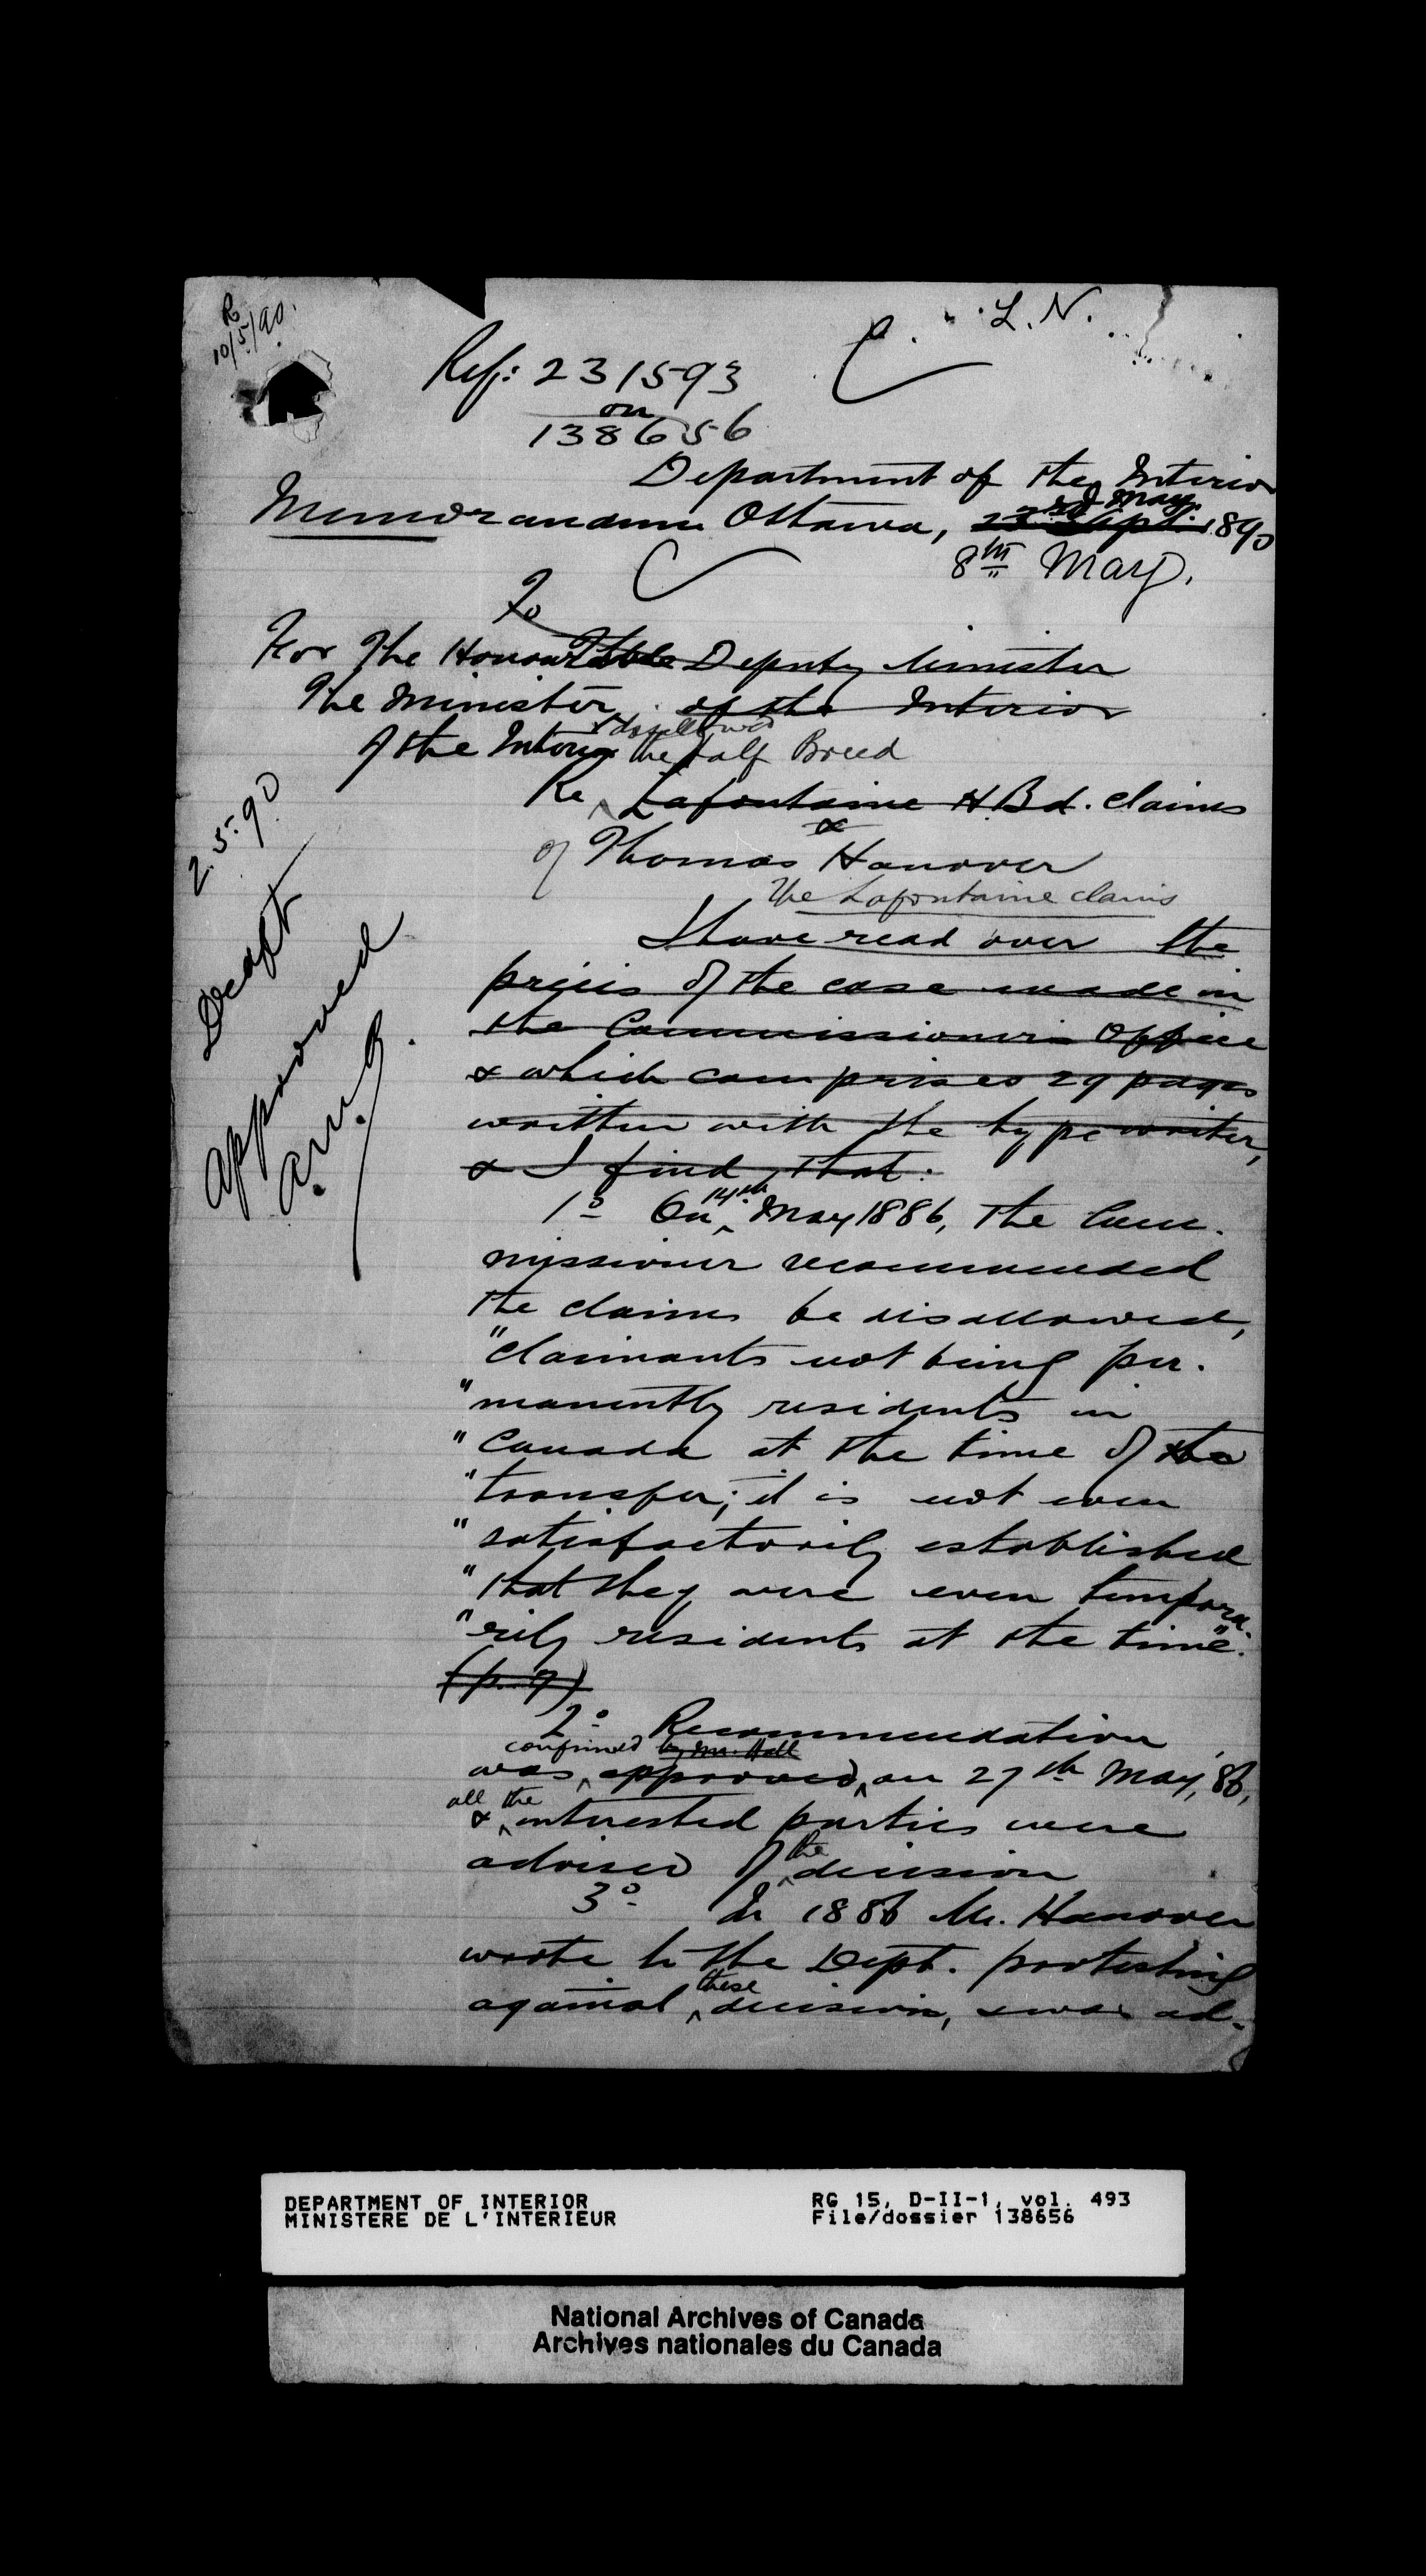 R
10/5/90.
L. N.
Ref: 231593
on
138656
Department of the Interior
rd May
Memorandum Ottawa, 23 Sept. 1890
8th May.
To
For The Honourable Deputy Minister
The Minister of the Interior
of the Interior
disallowed
the Half Breed
Re Lafontaine H. Bd. claims
&
of Thomas Hanover
The Lafontaine claims
I have read over the
précis of the case made in
the Commissioner's Office
& which comprises 29 pages
written with the type writer,
& I find that:
1º On 14th May 1886, the Com-
missioner recommended
the claims be disallowed,
"claimants not being per-
"manently residents in
"Canada at the time of the
"transfer; it is not even
"satisfactorily established
"that they were even tempora-
"rily residents at the time".
(p. 9)
2º Recommendation
confirmed by Mr. Hall
was approved, on 27th May, 86,
all the
& interested parties were
advised of the decision
3º In 1886 Mr. Hanover
wrote to the Dept. protesting
against these decision, & was ad-
2.5.90
Draft
approved
DEPARTMENT OF INTERIOR
MINISTERE DE L'INTERIEUR
RG 15, D-II-1, vol. 493
File/dossier 138656
National Archives of Canada
Archives nationales du Canada